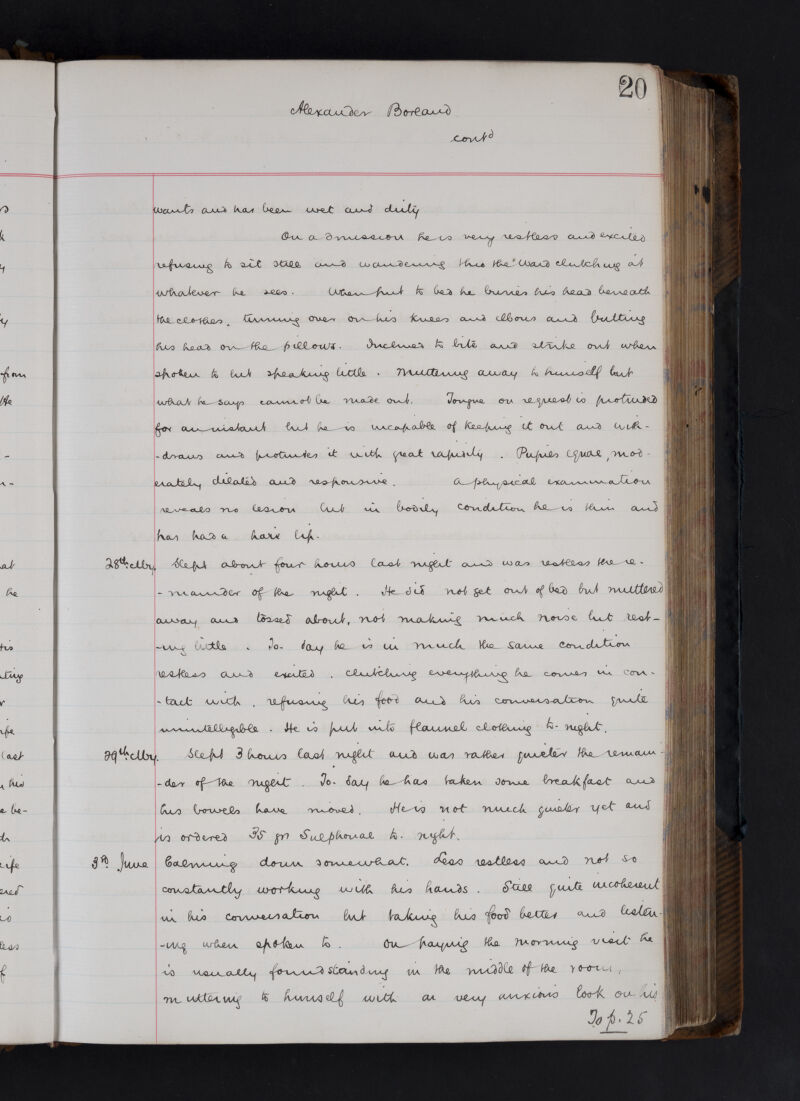 20
Alexander Boreland
contd
wants and has been wet and dirty
On admission he is very restless and excited
refusing to sit still and wandering thro the Ward clutching at
whatever he sees. When put to bed he buries his head beneath
the clothes, turning over on his knees and elbows and butting
his head on the pillows. Inclined to bite and strike out when
spoken to but speaking little. Muttering away to himself but
what he says cannot be made out. Tongue on request is protruded
for an instant but he is incapable of keeping it out and with-
-draws and protrudes it with great rapidity. Pupils equal, mod-
erately dilated and responsive. A physical examination
reveals no lesion but in bodily condition he is thin and
has had a hare lip.
28th: May. Slept about four hours last night and was restless the re-
-mainder of the night. He did not get out of bed but muttered
away and tossed about, not making much noise but rest-
-ing little. To-day he is in much the same condition
restless and excited, clutching everything he comes in con-
-tact with, refusing his food and his conversation quite
unintelligible. He is put into flannel clothing to-night.
29th: May. Slept 3 hours last night and was rather quieter the remain-
-der of the night. To-day he has taken some breakfast and
his bowels have moved. He is not much quieter yet and
is ordered 35 grs Sulphonal to-night.
3rd June Calming down somewhat. Less restless and not so
constantly working with his hands. Still quite incoherent
in his conversation but taking his food better and listen-
-ing when spoken to. On paying the morning visit he
is usually found standing in the middle of the room,
muttering to himself with a very anxious look on his
To p. 25